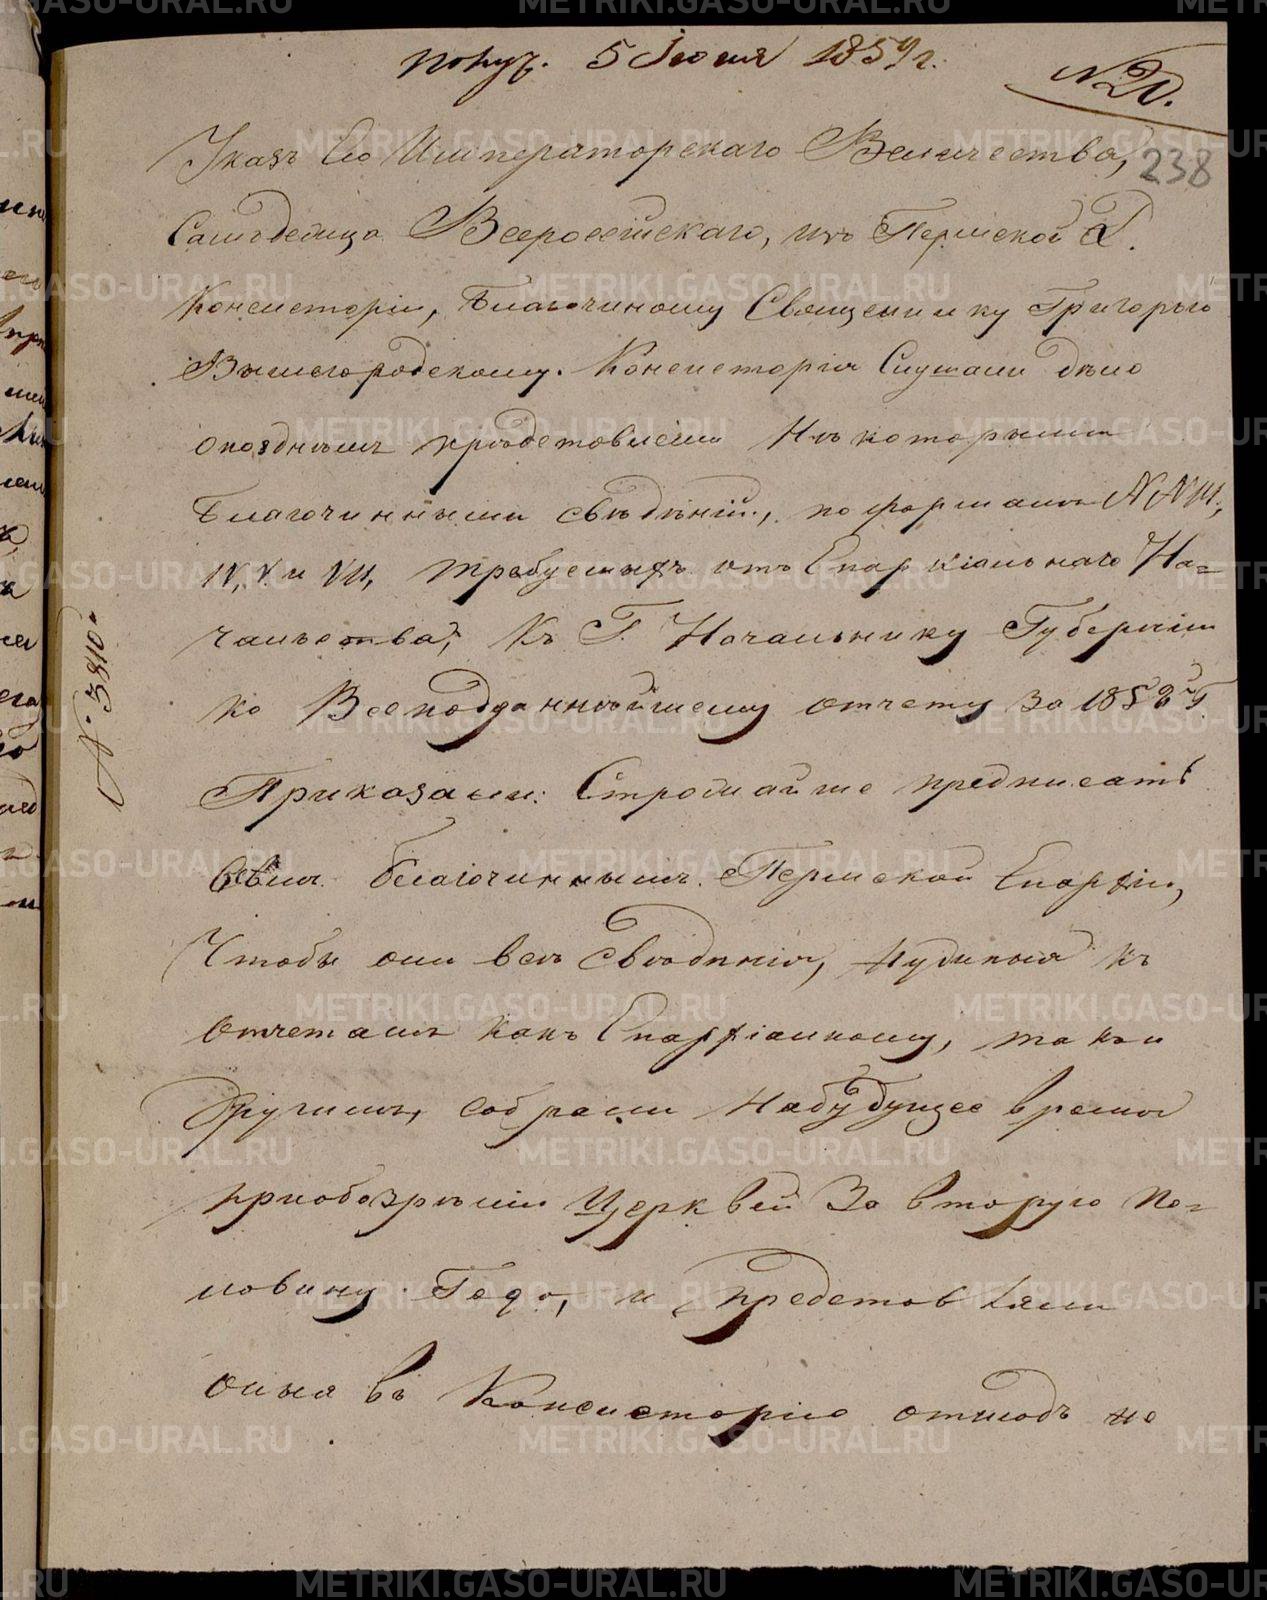 получ. 5 Июня 1859 г.
№ 20.
238
Указъ Его Императорскаго Величества,
Самодержца Всероссійскаго, изъ Пермской Д.
Консисторіи, Благочинному Священнику Григорью
Вышегородскому. Консисторія Слушали дѣло
о позднемъ представленіи Нѣкоторыми
Благочинными свѣдѣній, по формамъ №№ III,
IV, V и VII, требуемыхъ отъ Епархіальнаго На-
чальства, Къ Г. Начальнику Губерніи
ко Всеподданнѣйшему отчету за 1858й г.
Приказали: Строжайше предписать
всѣмъ благочиннымъ Пермской Епархіи,
Чтобы они всѣ свѣдѣнія, нужныя къ
отчетамъ какъ Епархіальному, такъ и
другимъ, собрали на будущее время
при обозрѣніи Церквей За вторую по-
ловину Года, и представляли
оныя въ Консисторію отнюдъ не
№ 3810.
METRIKI.GASO-URAL.RU